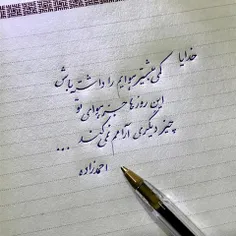 خدایا
کمی بیشتر هوایم را داشته باش
این روزها جز هوای تو
چیز دیگری آرامم نمی کند ...
احمدزاده